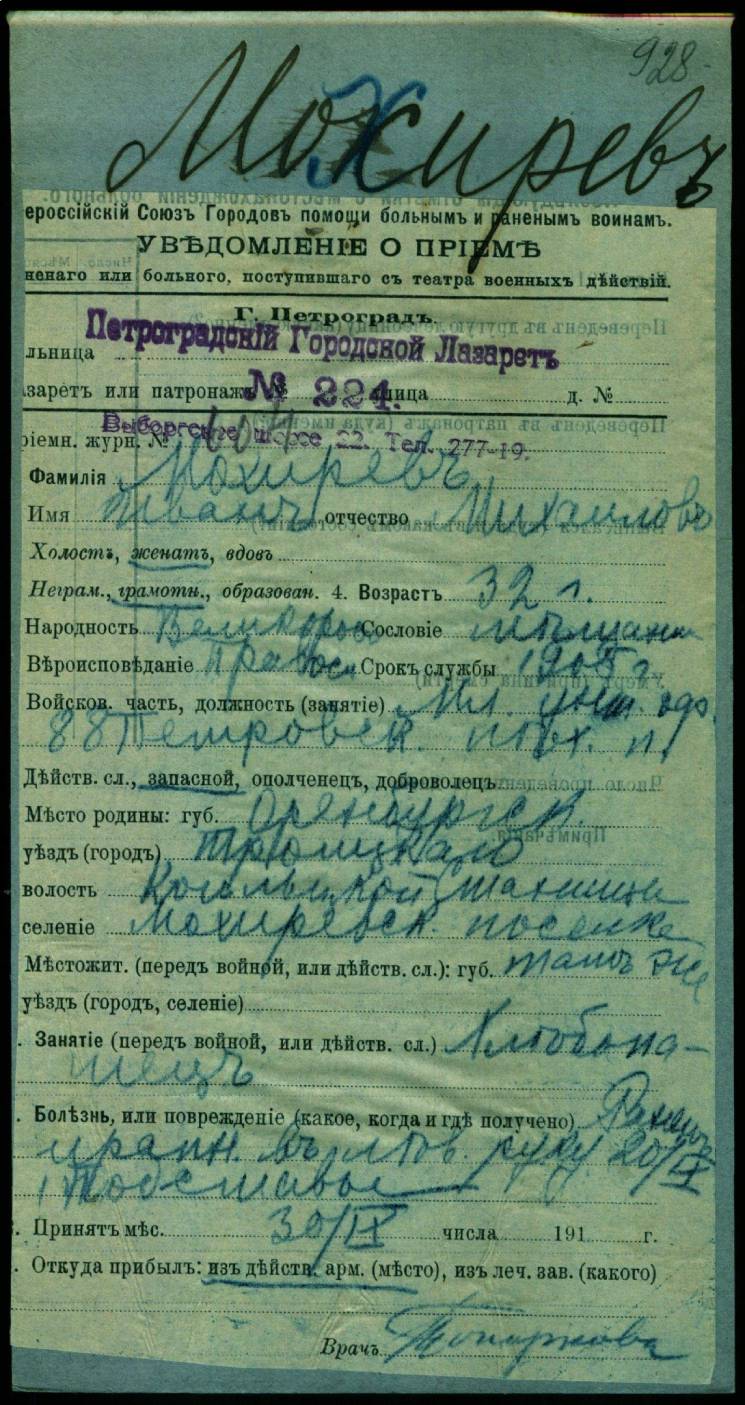 928
Мохиревъ
ероссійскій Союзъ Городовъ помощи больнымъ и раненымъ воинамъ.
УВѢДОМЛЕНІЕ О ПРІЕМѢ
ненаго или больного, поступившаго съ театра военныхъ дѣйствій.
Г. Петроградъ.
Петроградскій Городской Лазаретъ
льница
азаретъ или патронажъ № 224. лица д. №
Выборгское шоссе 22. Тел. 277-19.
ріемн. журн. №
Фамилія Мохиревъ
Имя Иванъ отчество Михаиловъ
Холостъ, женатъ, вдовъ
Неграм., грамотн., образован. 4. Возрастъ 32 г.
Народность Великорос Сословіе мѣщанин
Вѣроисповѣданіе Правос Срокъ службы 1905 г
Войсков. часть, должность (занятіе) Мл. унт. офо.
88 Петровск. пѣх. п.
Дѣйств. сл., запасной, ополченецъ, доброволецъ
Мѣсто родины: губ. Оренбургск.
уѣздъ (городъ) Троицкаго
волость Кособрodской станицы
селеніе Мохиревск. поселке
Мѣстожит. (передъ войной, или дѣйств. сл.): губ. тамъ же
уѣздъ (городъ, селеніе)
. Занятіе (передъ войной, или дѣйств. сл.) Хлѣбопа-
шецъ
. Болѣзнь, или поврежденіе (какое, когда и гдѣ получено) Раненъ
шрапн. въ лѣв. руку 20/IX
Подставы
. Принятъ мѣс. 30/IX числа 191 г.
. Откуда прибылъ: изъ дѣйств. арм. (мѣсто), изъ леч. зав. (какого)
Врачъ